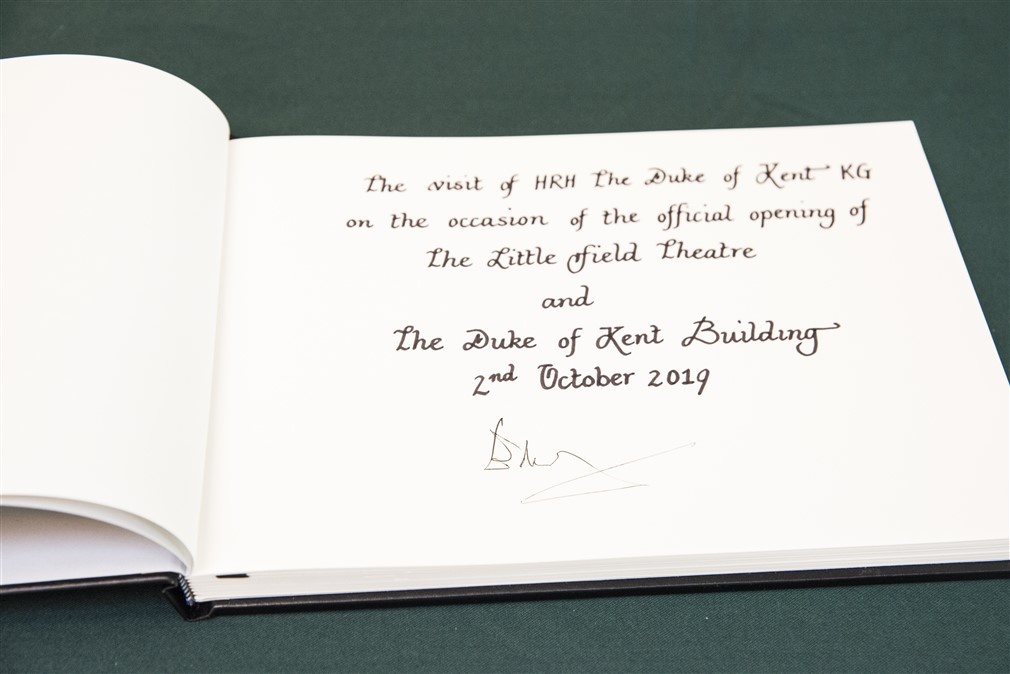 The visit of HRH The Duke of Kent KG
on the occasion of the official opening of
The Little field Theatre
and
The Duke of Kent Building
2nd October 2019